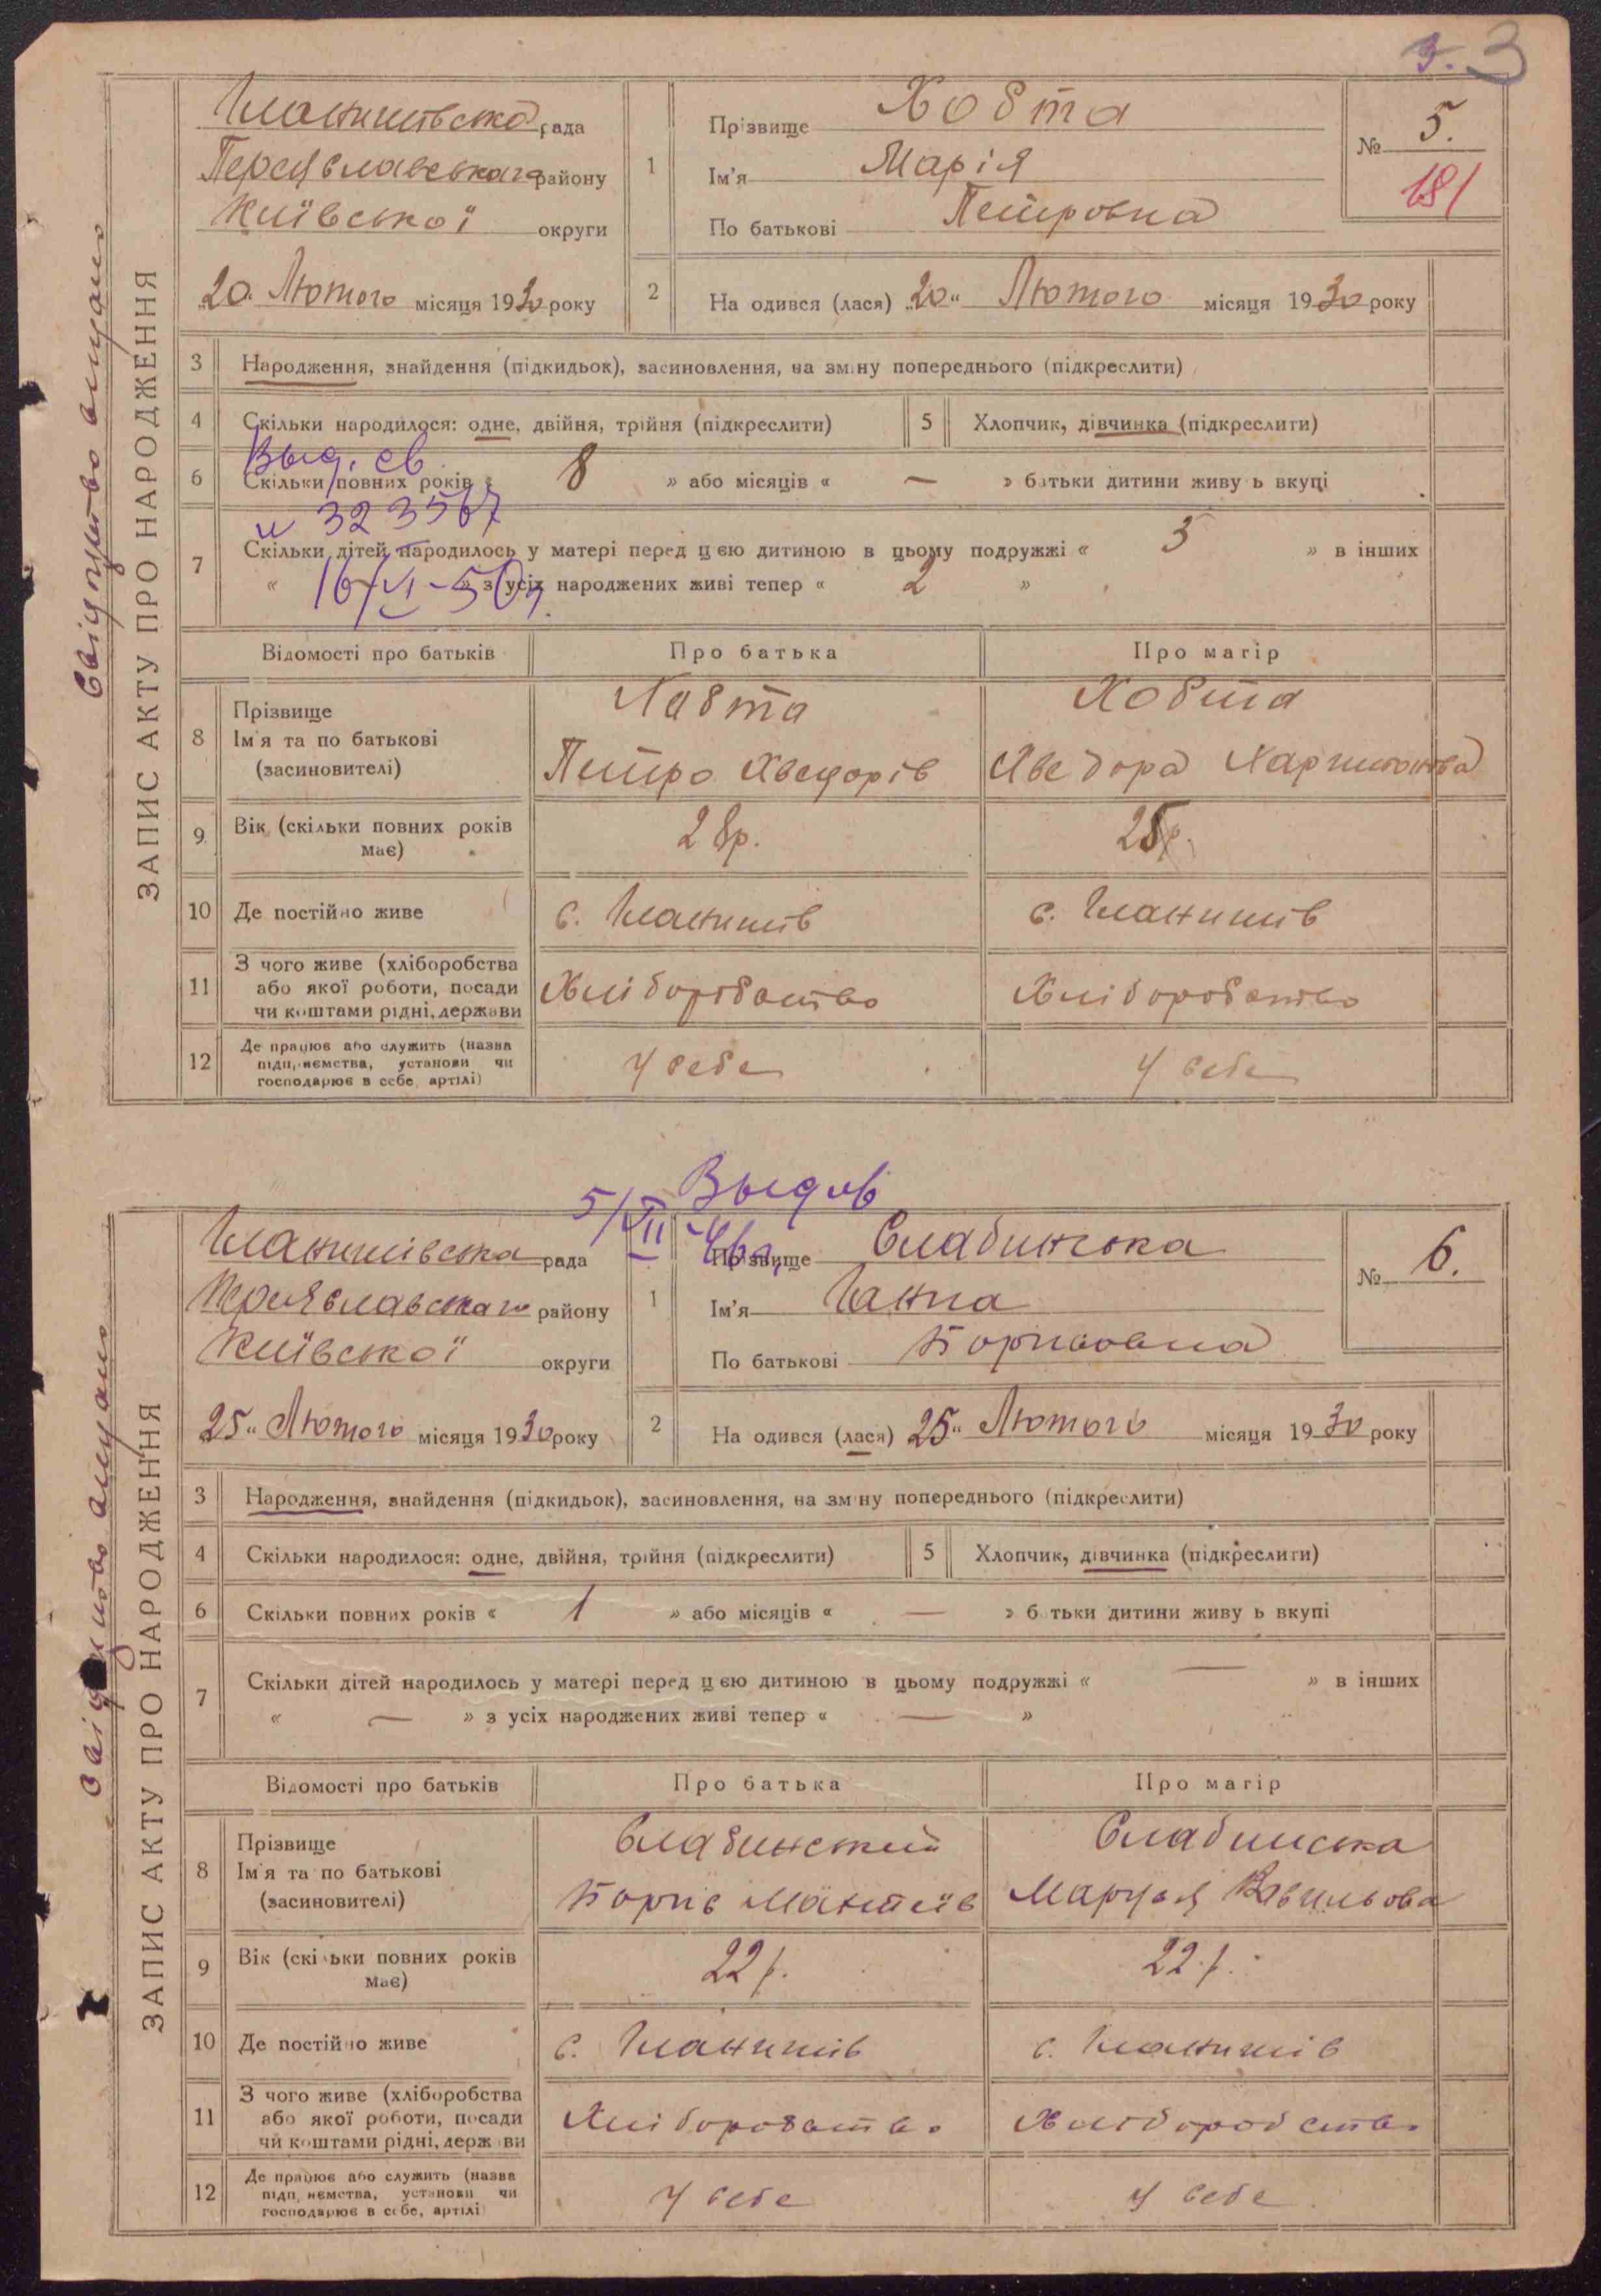 3. 3
Гланишівська рада
Переяславського району
Київської округи
20 Лютого місяця 1930 року
1
Прізвище Ховта
Ім'я Марія
По батькові Петровна
№ 5.
181
2 На одився (лася) „20“ Лютого місяця 1930 року
Свідоцтво видано
ЗАПИС АКТУ ПРО НАРОДЖЕННЯ
3 Народження, знайдення (підкидьок), засиновлення, на зміну попереднього (підкреслити)
4 Скільки народилося: одне, двійня, трійня (підкреслити) 5 Хлопчик, дівчинка (підкреслити)
Выд. св.
6 Скільки повних років « 8 » або місяців « — » батьки дитини живу ь вкупі
№ 323567
7 Скільки дітей народилось у матері перед цею дитиною в цьому подружжі « 3 » в інших
« » з усіх народжених живі тепер « 2 »
16/VI-50г.
Відомості про батьків Про батька Про матір
8 Прізвище
Ім'я та по батькові
(засиновителі)
Ховта Ховта
Петро Хведорів Хведора Харитонова
9 Вік (скільки повних років має) 28р. 25р.
10 Де постійно живе с. Гланишів с. Гланишів
11 З чого живе (хліборобства
або якої роботи, посади
чи коштами рідні, держави
Хліборобство Хліборобство
12 Де працює або служить (назва
підприємства, установи чи
господарює в себе, артілі)
У себе У себе
Выд св
5/VII-46г.
Гланишівська рада
Переяславського району
Київської округи
25“ Лютого місяця 1930 року
1
Прізвище Слабинська
Ім'я Ганна
По батькові Борисовна
№ 6.
2 На одився (лася) 25“ Лютого місяця 1930 року
Свідоцтво видано
ЗАПИС АКТУ ПРО НАРОДЖЕННЯ
3 Народження, знайдення (підкидьок), засиновлення, на зміну попереднього (підкреслити)
4 Скільки народилося: одне, двійня, трійня (підкреслити) 5 Хлопчик, дівчинка (підкреслити)
6 Скільки повних років « 1 » або місяців « — » б тьки дитини живу ь вкупі
7 Скільки дітей народилось у матері перед цею дитиною в цьому подружжі « — » в інших
« — » з усіх народжених живі тепер « — »
Відомості про батьків Про батька Про матір
8 Прізвище
Ім'я та по батькові
(засиновителі)
Слабинський Слабинська
Борис Мантеїв Маруся
9 Вік (скільки повних років має) 22р. 22.р.
10 Де постійно живе с. Гланишів с. Гланишів
11 З чого живе (хліборобства
або якої роботи, посади
чи коштами рідні, держ ви
Хліборобство Хліборобство
12 Де працює або служить (назва
підприємства, установи чи
господарює в себе, артілі
У себе У себе